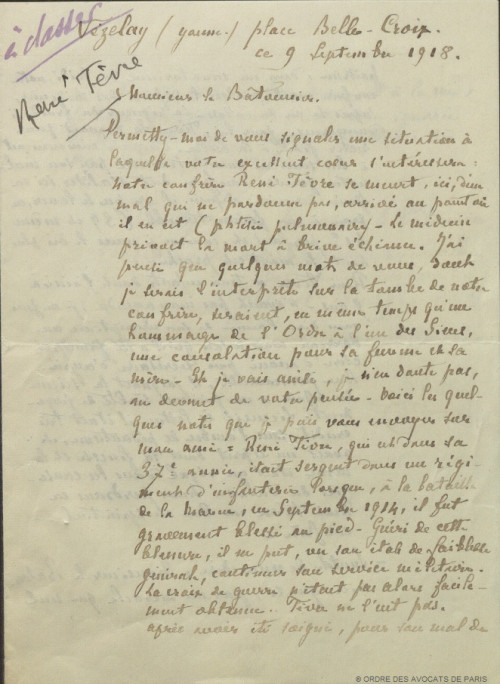 à classer
René Tèvre
Vézelay (yonne.) place Belle-Croix.
ce 9 Septembre 1918.
Monsieur le Bâtonnier.
Permettez-moi de vous signaler une situation à
laquelle votre excellent coeur s'intéressera:
notre confrère René Tèvre se meurt, ici, d'un
mal qui ne pardonne pas, arrivé au point où
il en est (phtisie pulmonaire) - Le médecin
prévoit la mort à brève échéance. J'ai
pensé que quelques mots de vous, dont
je serais l'interprète sur la tombe de notre
confrère, seraient, en même temps qu'un
hommage de l'Ordre à l'un des Siens,
une consolation pour sa femme et sa
mère - Et je vais ainsi, je n'en doute pas,
au devant de votre pensée - Voici les quel-
ques notes que je puis vous envoyer sur
mon ami = René Tèvre, qui est dans sa
37e année, était sergent dans un régi-
ment d'infanterie lorsque, à la bataille
de la Marne, en Septembre 1914, il fut
gravement blessé au pied - Guéri de cette
blessure, il ne put, vu son état de faiblesse
générale, continuer son service militaire.
La croix de guerre n'était pas alors facile-
ment obtenue. Tèvre ne l'eut pas.
après avoir été soigné, pour son mal de
© ORDRE DES AVOCATS DE PARIS